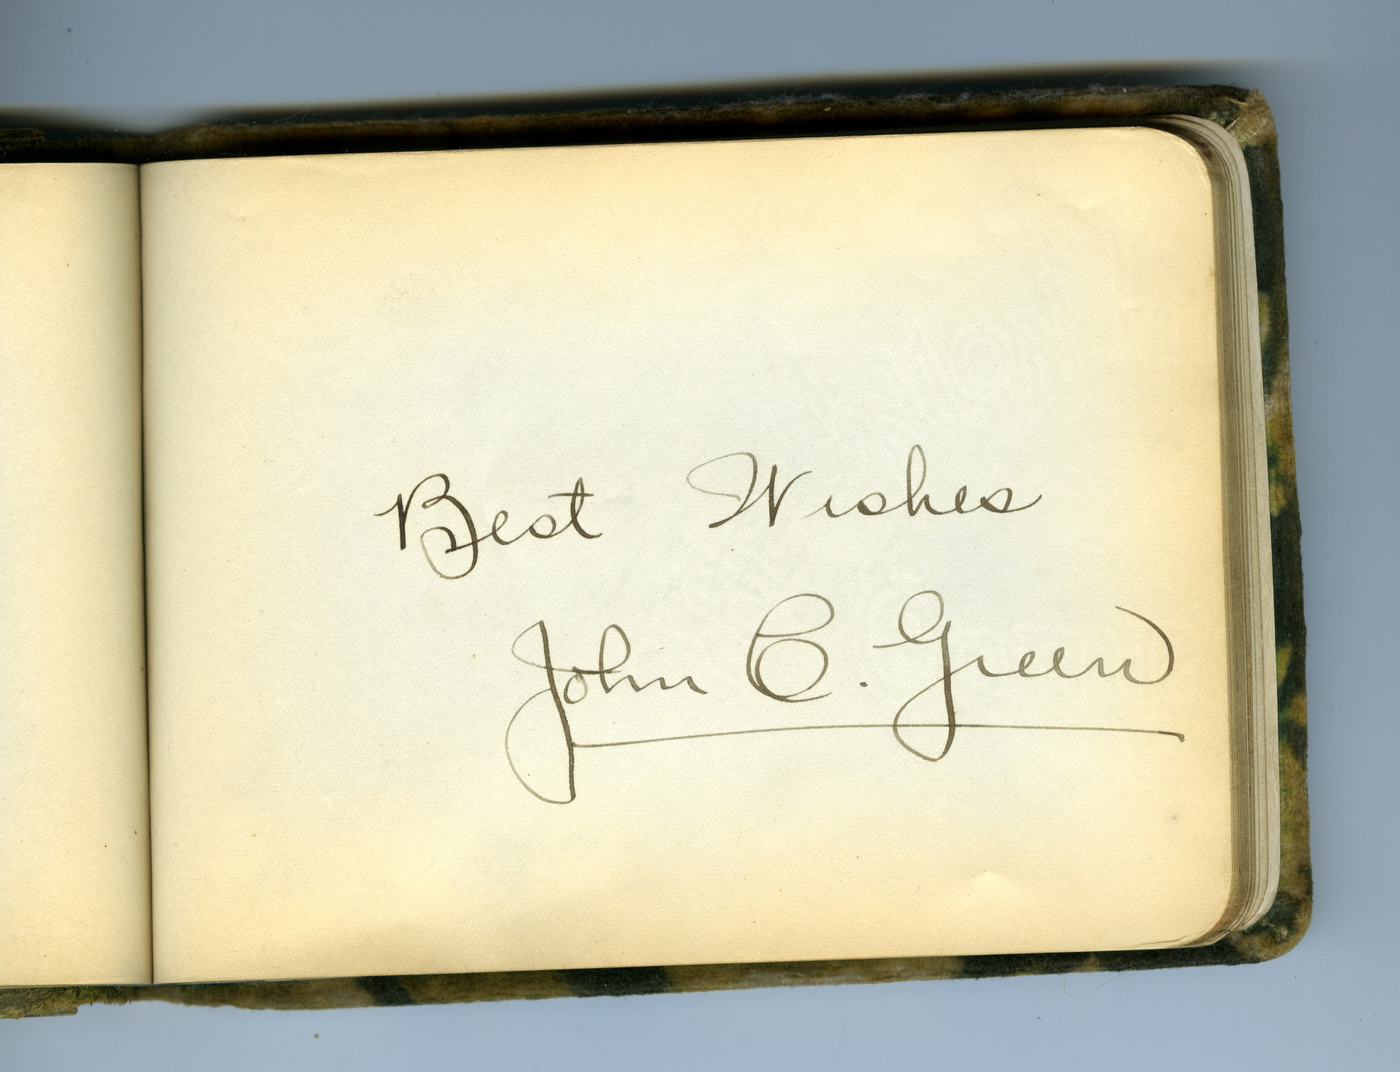 Best Wishes
John C. Green